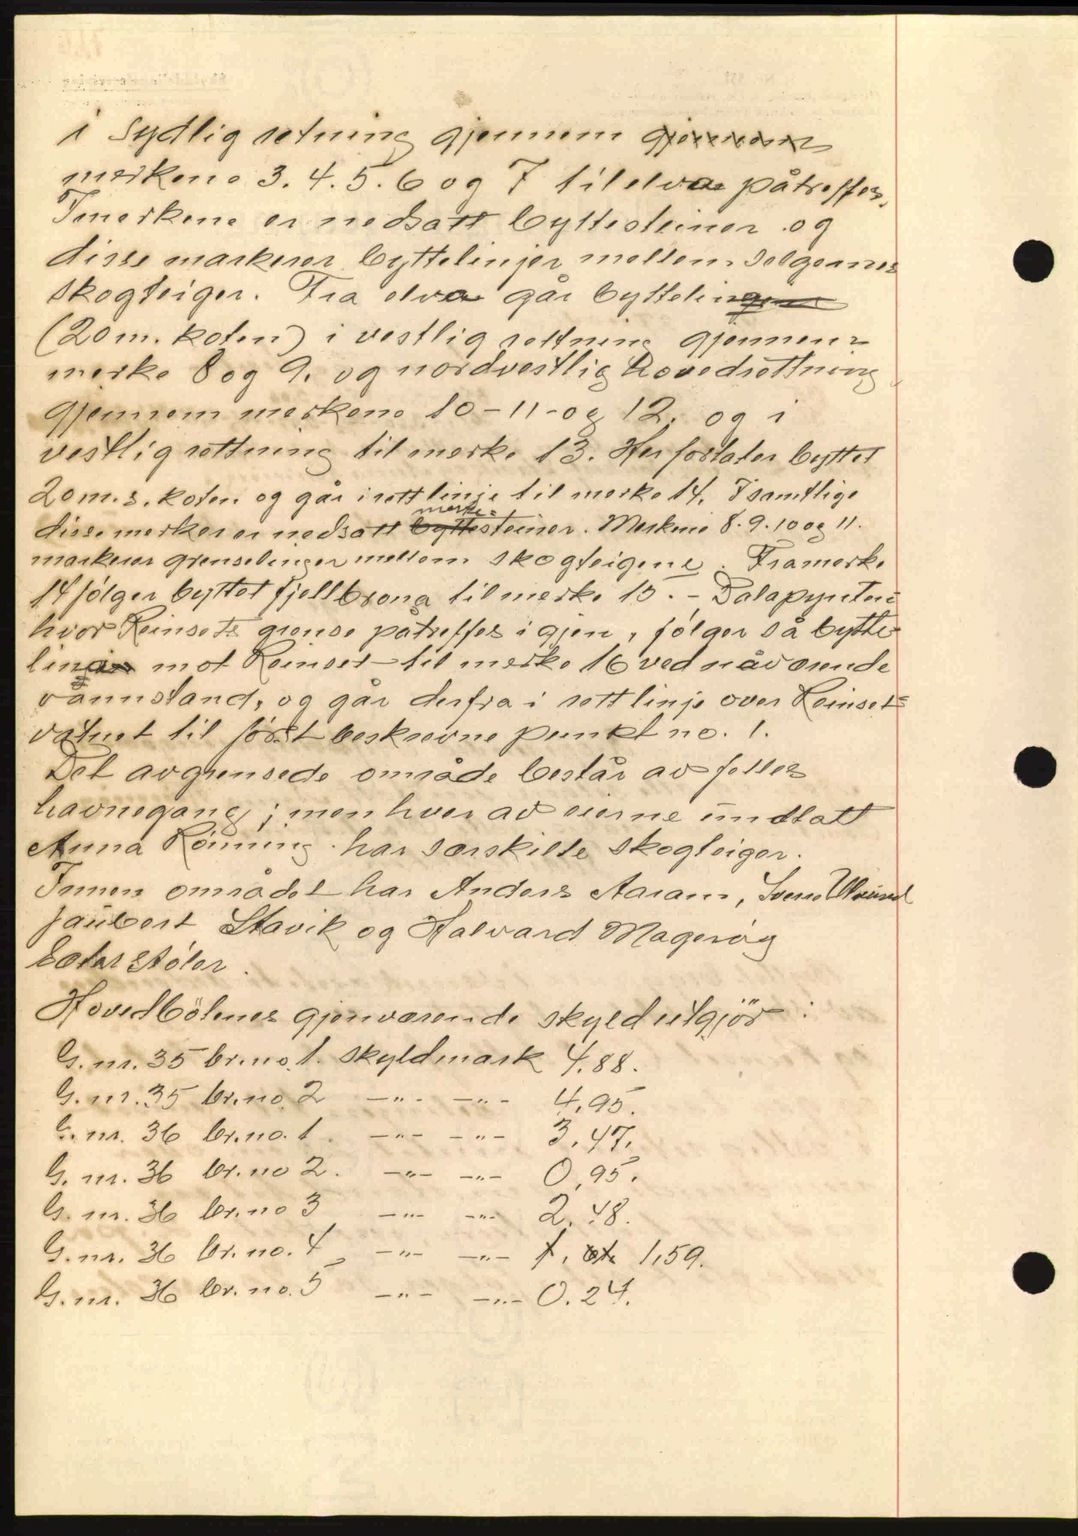 i sydlig retning gjennem gjennem
merkene 3. 4. 5. 6 og 7 til elva påtreffes.
I merkene er nedsatt byttesteiner og
disse markerer byttelinjer mellem selgernes
skogteiger. Fra elva går byttelinjen
(20 m. koten) i vestlig rettning gjennem
merke 8 og 9. og nordvestlig hovedrettning
gjennem merkene 10-11- og 12. og i
vestlig rettning til merke 13. Her forlater byttet
20 m.s. koten og går i rett linje til merke 14. I samtlige
disse merker er nedsatt byttesteiner. merke= Merkene 8. 9. 10 og 11.
markerer grenselinjer mellem skogteigene. Fra merke
14 følger byttet fjellbrona til merke 15. - Dalapynten=
hvor Reinsets grense påtreffes igjen, følger så bytte=
linjen mot Reinset til merke 16 ved nåværende
vannstand, og går derfra i rett linje over Reinset=
vatnet til først beskrevne punkt no. 1.
Det avgrensede område består av felles
havnegang; men hver av eierne undtatt
Anna Rönning har særskilte skogteiger.
Innen området har Anders Aaram, Sverre
Stavik og Halvard Magerøy
Sæterstøler.
Hovedbölenes gjenværende skyld utgjör:
G. nr. 35 br. no. 1. skyldmark 4.88.
G. nr. 35 br. no. 2 -"- -"- 4,95.
G. nr. 36 br. no. 1. -"- -"- 3.47.
G. nr. 36 br. no 2. -"- -"- 0,95.
G. nr. 36 br. no 3 -"- -"- 2.48.
G. nr. 36 br. no. 4 -"- -"- 1,59.
G. nr. 36 br. no. 5 -"- -"- 0.24.